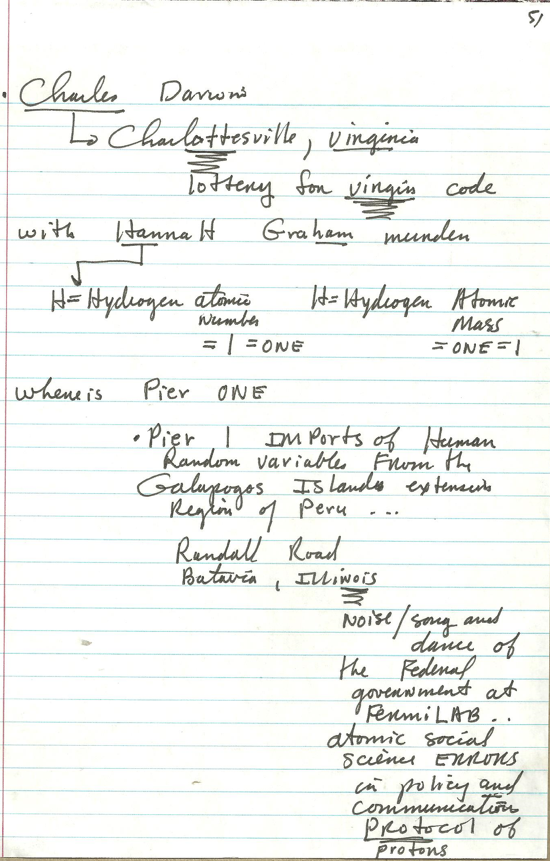 51
Charles Darwin
Charlottesville, virginia
lottery for virgin code
with HannaH Graham murder
H=Hydrogen atomic H=Hydrogen Atomic
Number Mass
= 1 = ONE = ONE = 1
where is Pier ONE
• Pier 1 IMPorts of Human
Random variables From the
Galapogos ISlands extension
Region of Peru ...
Randall Road
Batavia, ILLinois
NOISE/song and
dance of
the Federal
government at
FERMiLAB..
atomic social
science ERRORS
in policy and
communication
PROtocol of
protons